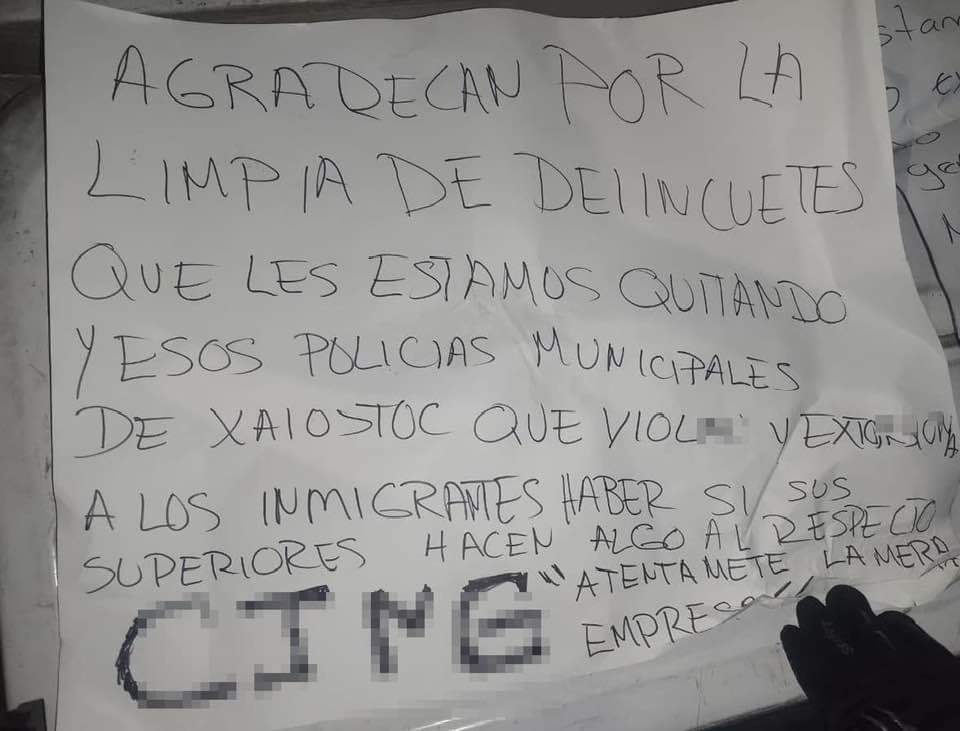 AGRADECAN POR LA
LIMPIA DE DELINCUETES
QUE LES ESTAMOS QUITANDO
Y ESOS POLICIAS MUNICIPALES
DE XAIOSTOC QUE Y
A LOS INMIGRANTES HABER SI SUS
SUPERIORES HACEN ALGO AL RESPECTO
CJNG "ATENTAMETE LA MERA